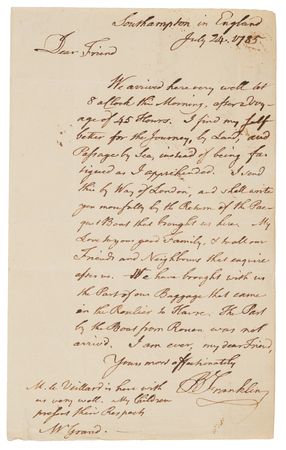 Southampton in England
July 24. 1785
Dear Friend
We arrived here very well at
8 aClock this Morning, after a Voy-
age of 45 Hours. I find myself
better for the Journey, by Land, and
Passage by Sea, instead of being fa-
tigued as I apprehended. I send
this by Way of London, and shall write
you more fully by the Return of the Pac-
quet Boat that brought us here. My
Love to your good Family, & to all our
Friends and Neighbours that enquire
after us. We have brought with us
the Part of our Baggage that came
on the Roulier to Havre. The Part
by the Boat from Rouen was not
arrived. I am ever, my dear Friend,
Yours most affectionately
B Franklin
M. le Veillard is here with
us very well. My Children
present their Respects
Mr Grand.